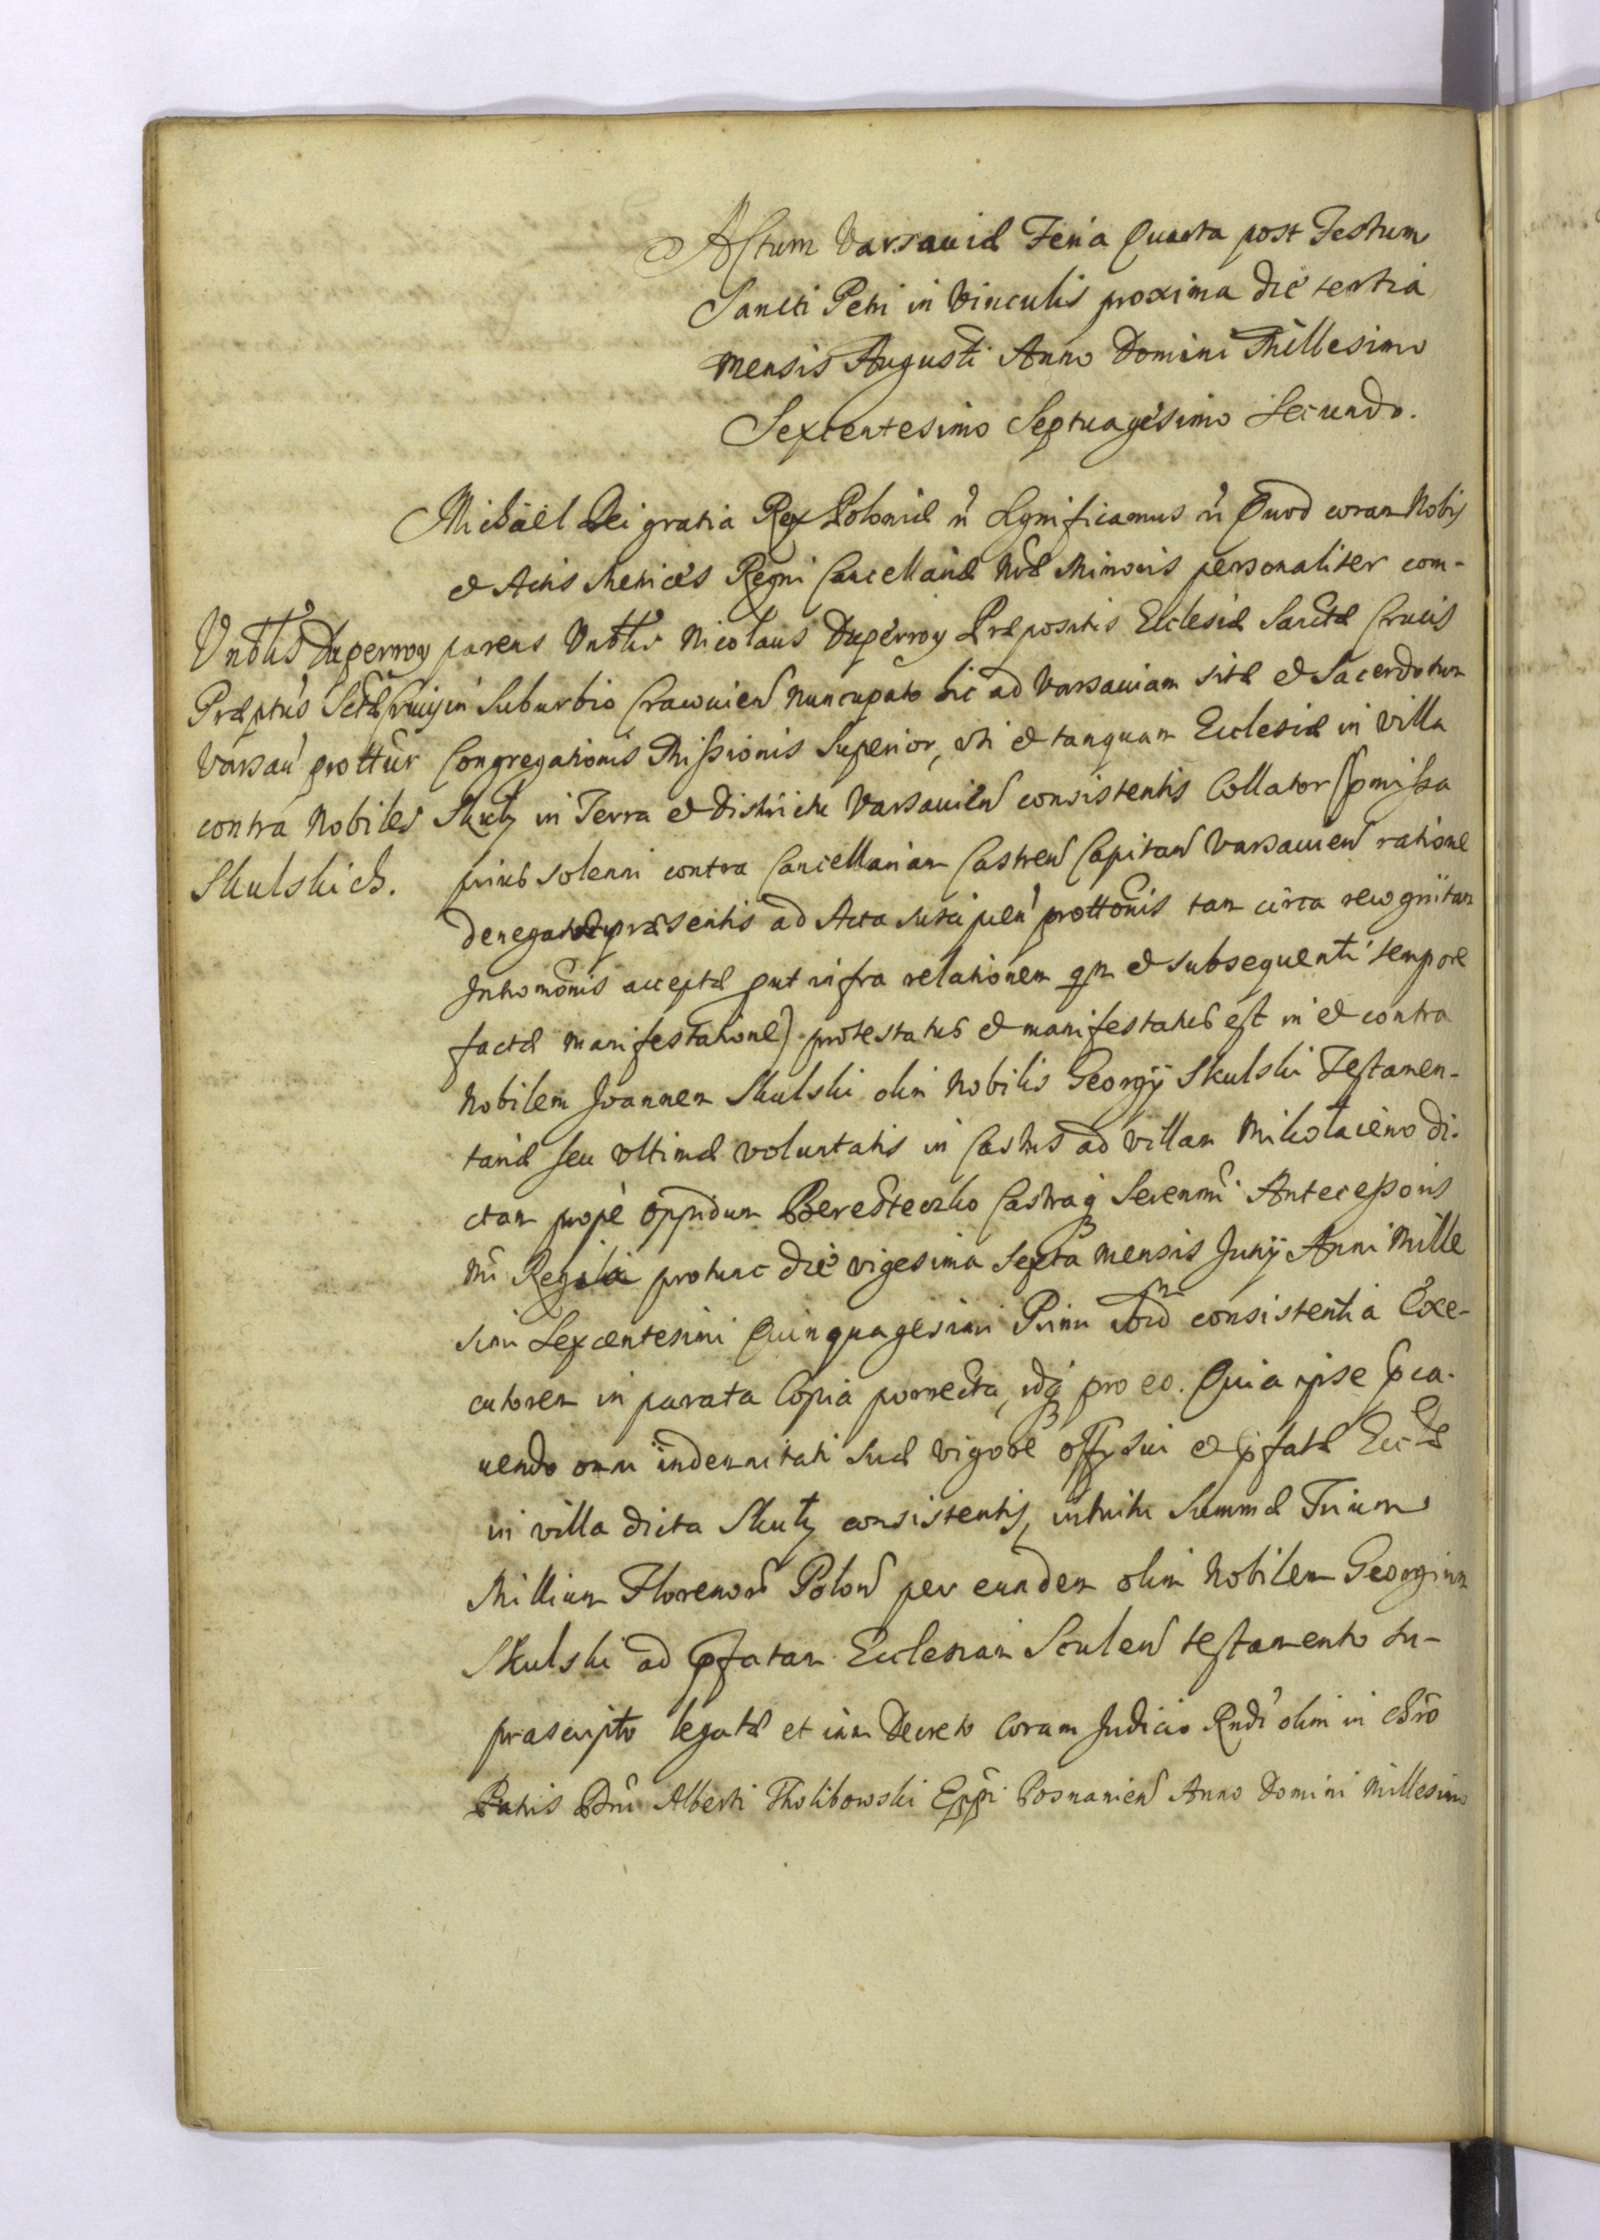 Actum Varsaviæ Feria Quarta post Festum
Sancti Petri in Vinculis proxima die tertia
Mensis Augusti Anno Domini Millesimo
Sexcentesimo Septuagesimo Secundo.
Michael Dei gratia Rex Poloniæ Significamus Quod coram Nobis
et Actis Metrices Regni Cancellariæ Nræ Minoris personaliter com-
parens Vnblis Nicolaus Duperroy Præpositus Ecclesiæ Sanctæ Crucis
in Suburbio Cracovien nuncupato hic ad Varsaviam sitæ et Sacerdotum
Congregationis Missionis Superior, uti et tanquam Ecclesiæ in villa
Skuły in Terra et Districtu Varsavien consistentis Collator (pmissa
prius solenni contra Cancellariam Castren Capitan Varsavien ratione
denegatæ præsentis ad Acta suscipien prottonis tam circa recognitam
Intromonis acceptæ put infra relationem qm et subsequenti tempore
factæ manifestatione) protestatus et manifestatus est in et contra
Nobilem Joannem Skulski olim Nobilis Georgij Skulski Testamen-
tariæ seu vltimæ voluntatis in Castris ad villam Mikołaiewo di-
ctam prope oppidum Beresteczko Castraq Serenmi Antecessoris
Nri protunc die vigesima Sexta mensis Junij Anni Mille
simi Sexcentesimi Quinquagesimi Primi consistentia Exe-
cutorem in parata Copia porrecta, idq pro eo. Quia ipse pca-
uendo omni indemnitati suæ vigore offy sui et pfatæ Eccæ
in villa dicta Skuły consistentis, intuitu Summæ Trium
Millium Florenor Polon per eundem olim Nobilem Georgium
Skulski ad pfatam Ecclesiam Sculen testamento su-
prascripto legatæ et in Decreto Coram Judicio Rndi olim in Chro
Patris Dni Alberti Tholibowski Eppi Posnanien Anno Domini Millesimo
Vnblis Duperroy
Præptus Sctæ Crucis
Varsau prottur
contra Nobiles
Skulskich.